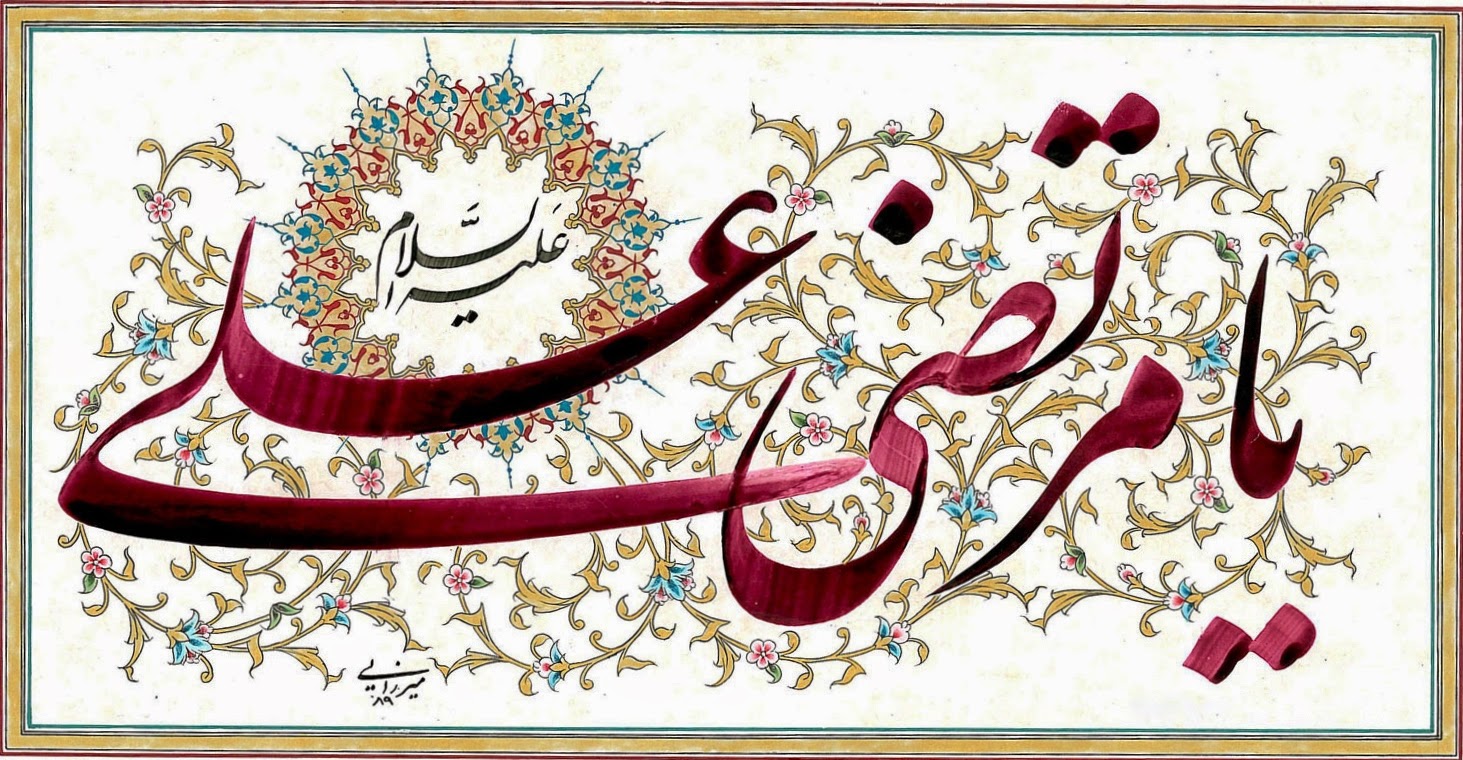 یا مرتضی علی
عَلیه السَّلام
میرزایی
۸۹